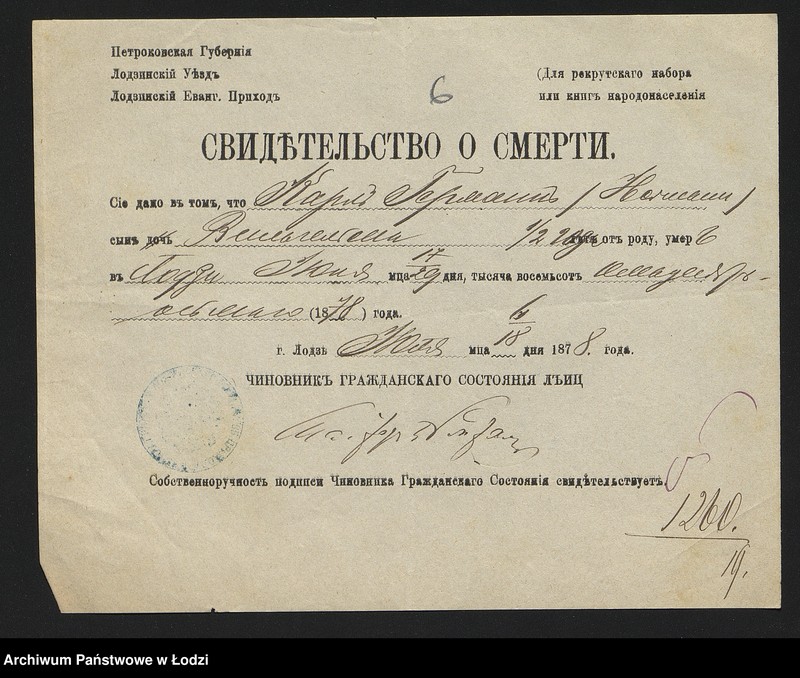 Петроковская Губернія
Лодзинскій Уѣздъ
Лодзинскій Еванг. Приходъ
6
(Для рекрутскаго набора
или книгъ народонаселенія
СВИДѢТЕЛЬСТВО О СМЕРТИ.
Сіе дано въ томъ, что Карлъ Германъ / Hermann /
сынъ дочь 1/2 года лѣтъ отъ роду, умер ъ
въ Лодзи мца 17/29 дня, тысяча восемьсотъ семьдесятъ
осьмаго (1878) года.
г. Лодзь мца 6/18 дня 1878. года.
ЧИНОВНИКЪ ГРАЖДАНСКАГО СОСТОЯНІЯ ЛЪИЦ
Собственноручность подписи Чиновника Гражданскаго Состоянія свидѣтельствуетъ.
1260.
Archiwum Państwowe w Łodzi